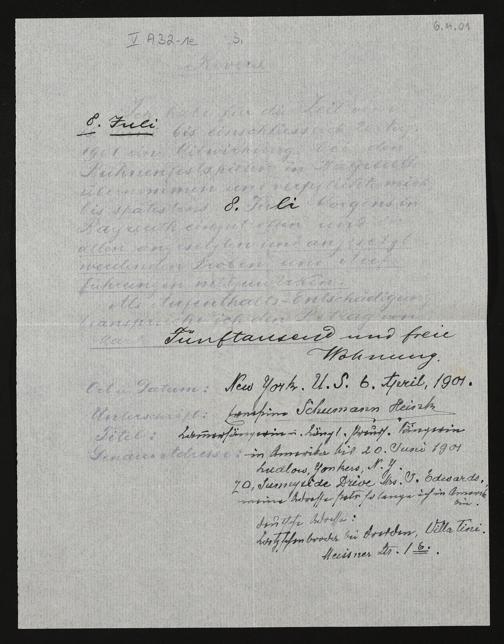 V A 32-1e 3.
6.4.01
Revers
Ich habe für die Zeit vom
8. Juli bis einschliesslich 20. Aug.
1901 die Mitwirkung bei den
Bühnenfestspielen in Bayreuth
übernommen und verpflichte mich
bis spätestens 8. Juli Morgens in
Bayreuth einzutreffen und
allen angesetzten und angesetzt
werdenden Proben und Auf-
führungen mitzuwirken.
Als Aufenthalts-Entschädigung
beanspruche ich den Betrag von
Mark Fünftausend und freie
Wohnung.
Ort u. Datum: New York. U. S. 6. April, 1901.
Unterschrift: Ernestine Schumann Heink
Titel: Kammersängerin u. Königl. Preuß. Sängerin
Genaue Adresse: in Amerika bis 20. Juni 1901
Ludlow, Yonkers, N. Y.
70, Sunnyside Drive Mrs. J. Edwards.
meine Adresse stets so lange ich in Amerika
bin.
deutsche Adresse:
Kötzschenbroda bei Dresden, Villa Tini.
Meissner Str. 16.